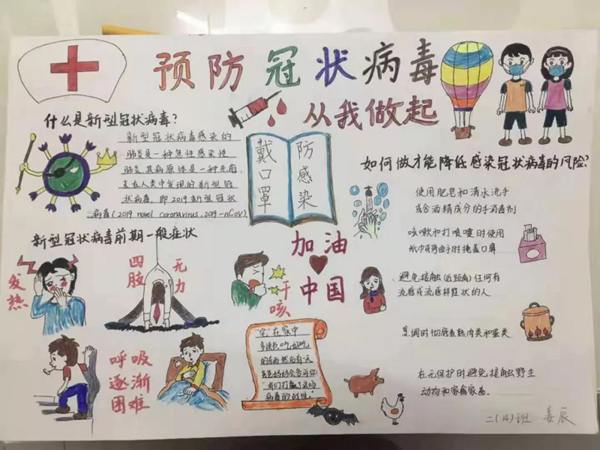 预防冠状病毒
从我做起
什么是新型冠状病毒?
新型冠状病毒感染的
肺炎是一种急性感染性
肺炎,其病原体是一种先前
未在人类中发现的新型冠
状病毒,即2019新型冠状
病毒(2019 novel coronavirus, 2019-nCoV)
戴口罩
防感染
如何做才能降低感染冠状病毒的风险?
使用肥皂和清水洗手
或含酒精成分的手消毒剂
咳嗽和打喷嚏时使用
纸巾或弯曲手肘掩盖口鼻
避免接触(近距离)任何有
流感或流感样症状的人
烹调时彻底熟肉类和蛋类
在无保护时避免接触野生
动物和家禽家畜。
新型冠状病毒前期一般症状
发热
四肢
无力
干咳
呼吸
逐渐
困难
加油
中国
病毒的战役。"
二(14)班 姜辰